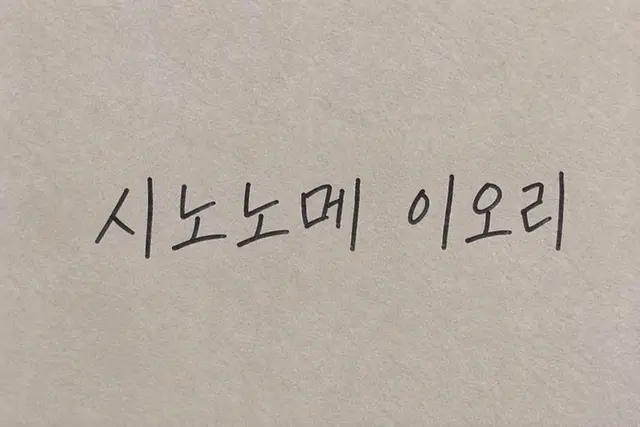 시노노메 이오리